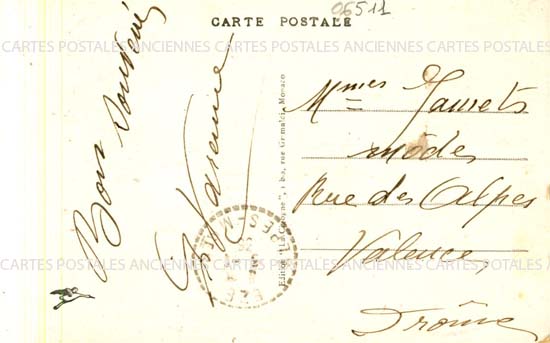 06511
CARTE POSTALE
CARTES POSTALES ANCIENNES CARTES POSTALES ANCIENNES CARTES POSTALES
Bon souvenir
Mmes
modes
Rue des Alpes
Valence,
Drôme
Edition "La Cigogne", 1 bis, rue Grimaldi, Monaco
EZE
CARTES POSTALES ANCIENNES CARTES POSTALES ANCIENNES CARTES POSTALES